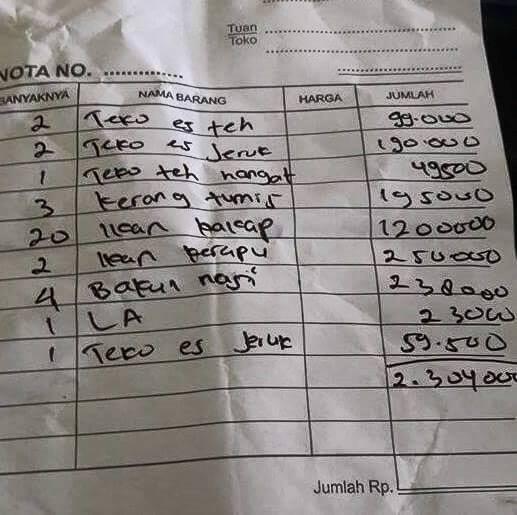 Tuan
Toko
NOTA NO.
BANYAKNYA NAMA BARANG HARGA JUMLAH
2 Teko es teh 99.000
2 Teko es Jeruk 190.000
1 Teko teh hangat 49500
3 kerang tumis 195000
20 Ikan bakap 1200000
2 Ikan kerapu 250000
4 Bakun nasi 238000
1 LA 23000
1 Teko es Jeruk 59.500
2.304000
Jumlah Rp.